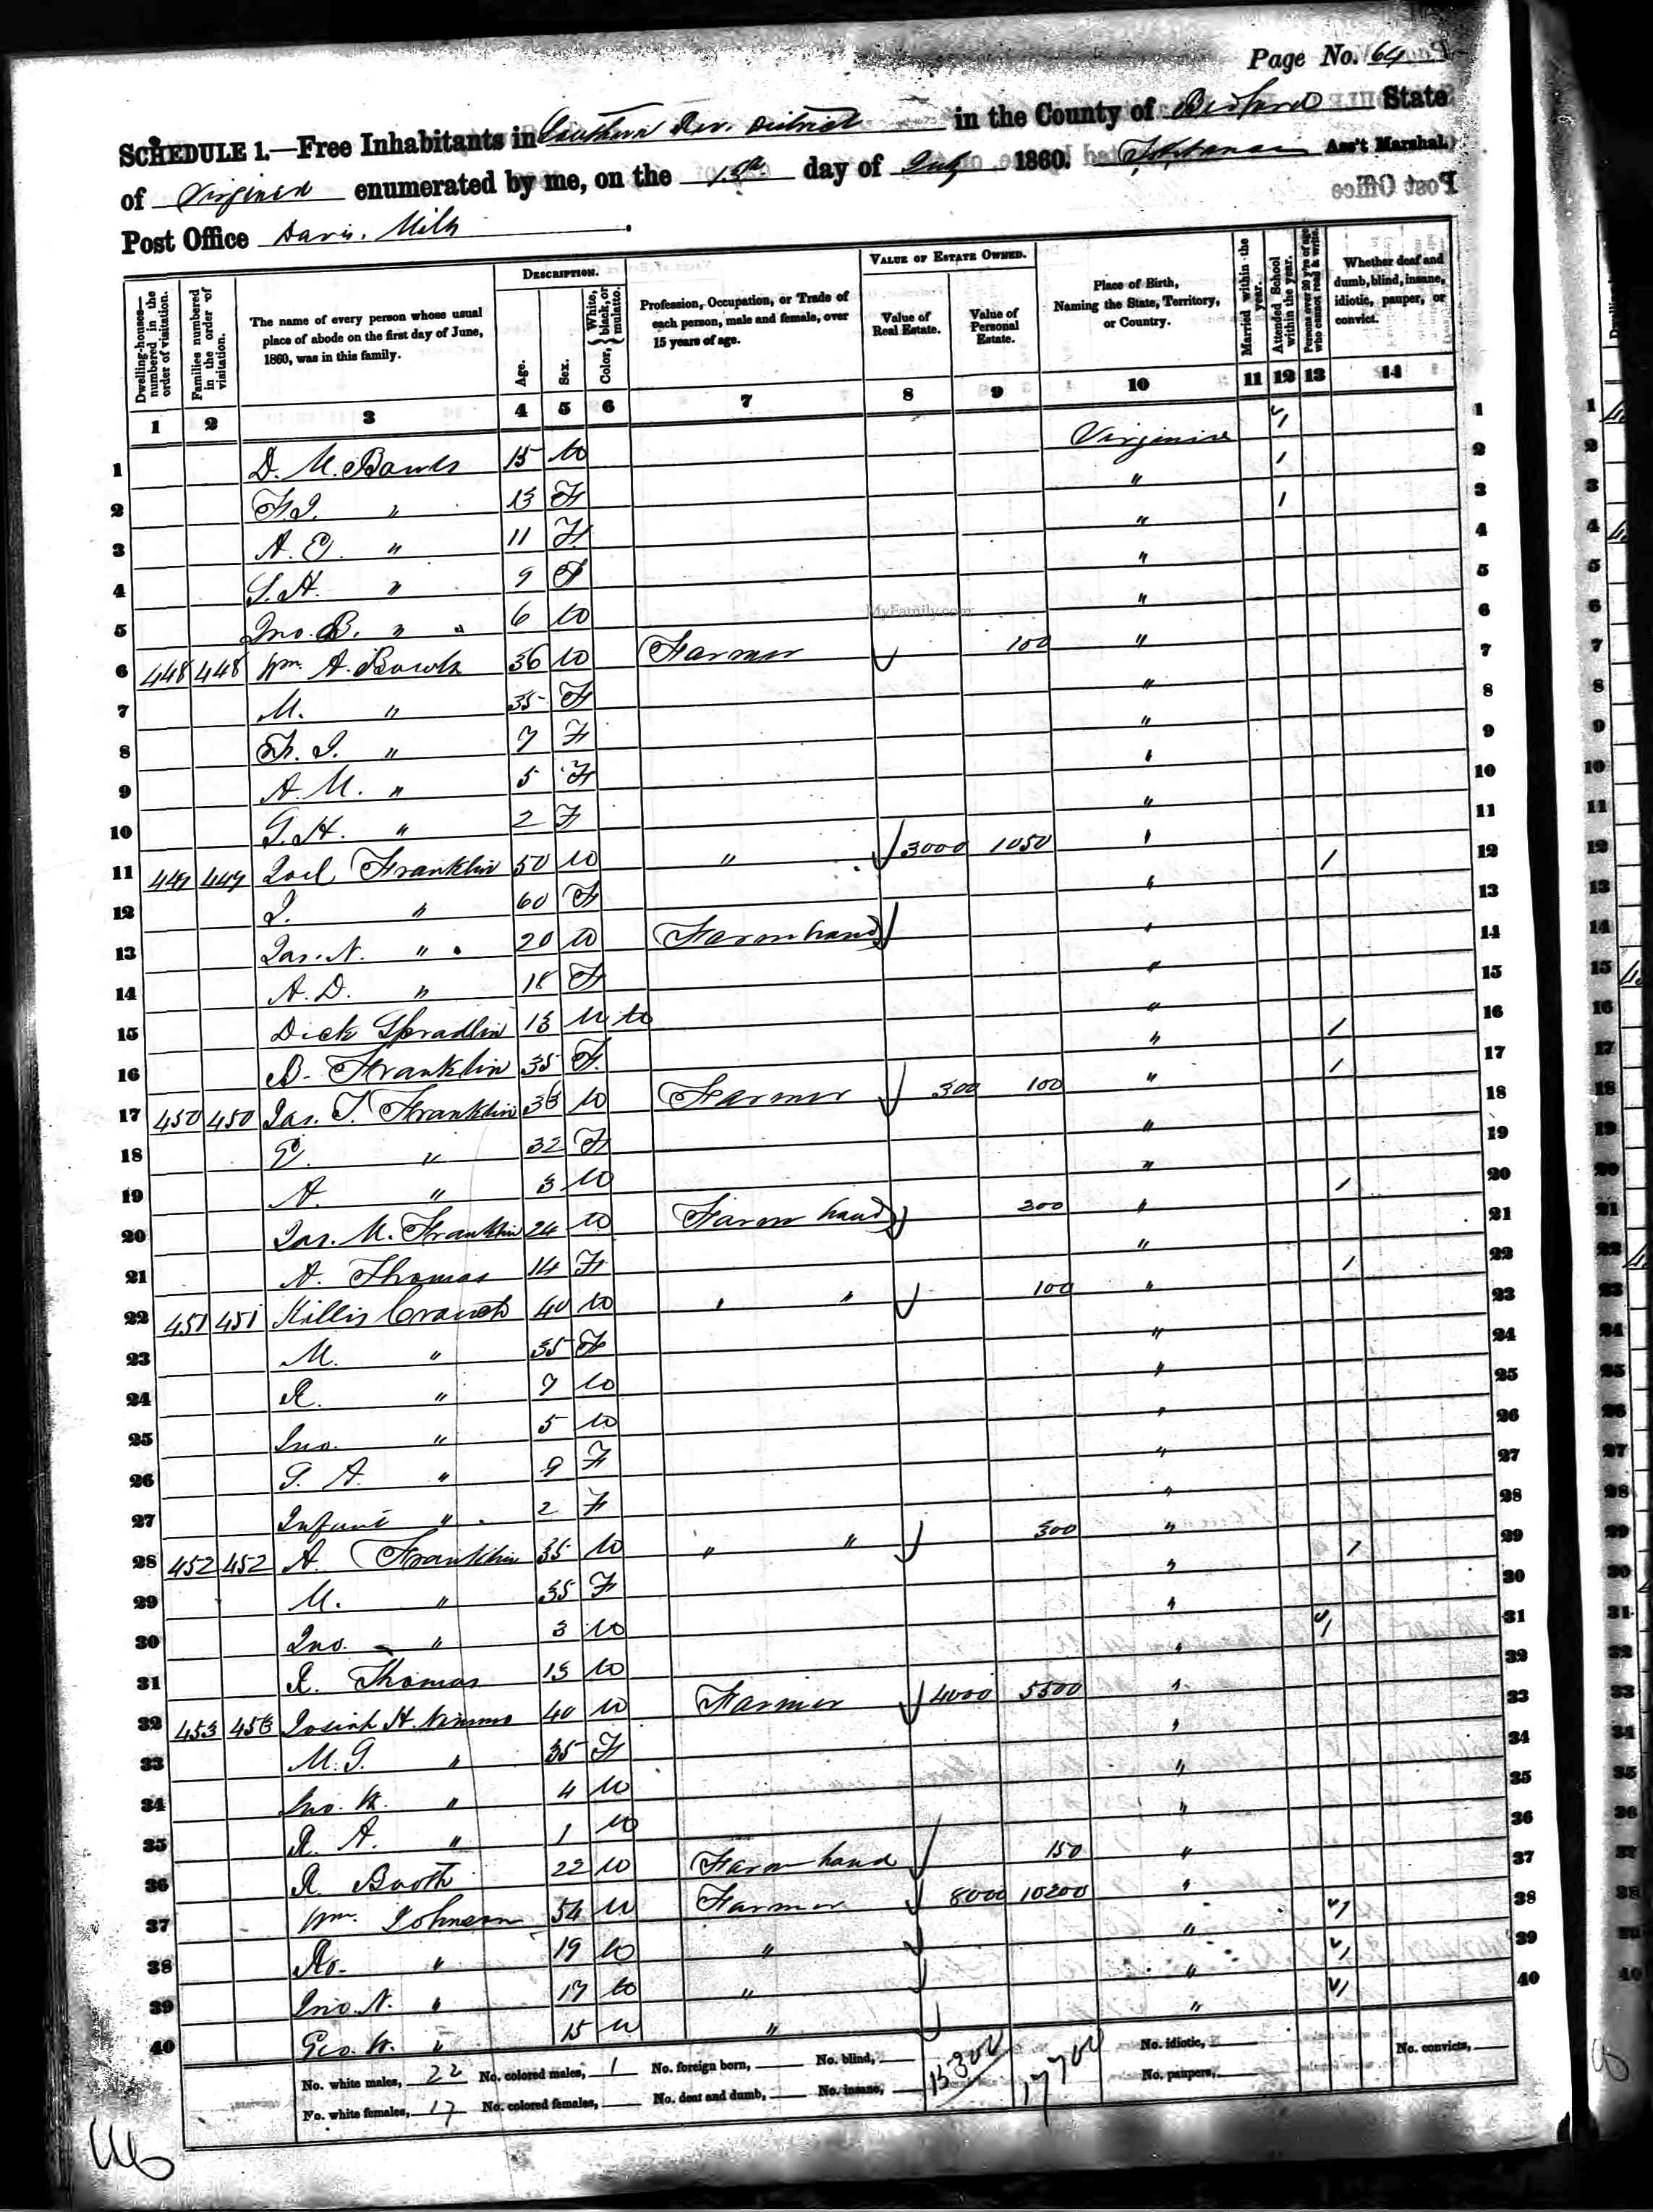 Page No. 64
SCHEDULE 1.—Free Inhabitants in Southern Rev. District in the County of Bedford State
of Virginia enumerated by me, on the 13th day of July 1860. Ass't Marshal.
Post Office
Post Office Davis Mills.
Dwelling-houses—numbered in the order of visitation.
Families numbered in the order of visitation.
The name of every person whose usual place of abode on the first day of June, 1860, was in this family.
DESCRIPTION.
Age.
Sex.
Color, {White, black, or mulatto.
Profession, Occupation, or Trade of each person, male and female, over 15 years of age.
VALUE OF ESTATE OWNED.
Value of Real Estate.
Value of Personal Estate.
Place of Birth, Naming the State, Territory, or Country.
Married within the year.
Attended School within the year.
Persons over 20 y'rs of age who cannot read & write.
Whether deaf and dumb, blind, insane, idiotic, pauper, or convict.
1 2 3 4 5 6 7 8 9 10 11 12 13 14
1 D. M. Bowls 15 M Virginia / 1
2 F. J. " 13 F " / 2
3 A. E. " 11 F " / 3
4 S. H. " 9 F " 4
5 Jno. B. " " 6 M " 5
MyFamily.com
6 448 448 Wm. A. Bowls 36 M Farmer 100 " 6
7 M. " 35 F " 7
8 " 7 F " 8
9 A. M. " 5 F " 9
10 G. H. " 2 F " 10
11 449 449 Joel Franklin 50 M " 3000 1050 " 11
12 J. " 60 F " / 12
13 Jas. N. " 20 M Farm hand " 13
14 A. D. " 18 F " 14
15 Dick Spradlin 13 M " 15
16 B. Franklin 35 F " / 16
17 450 450 Jas. T. Franklin 36 M Farmer 300 100 " / 17
18 E. " 32 F " 18
19 A. " 3 M " 19
20 Jas. M. Franklin 24 M Farm hand 200 " / 20
21 A. Thomas 14 F " 21
22 451 451 Killis Crouch 40 M " " 100 " / 22
23 M. " 35 F " 23
24 R. " 7 M " 24
25 Jno. " 5 M " 25
26 G. A. " 9 F " 26
27 Infant " 2 F " 27
28 452 452 A. Franklin 35 M " " 300 " 28
29 M. " 35 F " / 29
30 Jno. " 3 M " 30
31 R. Thomas 13 M " / 31
32 453 453 Josiah H. Nimmo 40 M Farmer 4000 5500 " 32
33 M. G. " 35 F " 33
34 Jno. W. " 4 M " 34
35 R. A. " 1 M " 35
36 R. Booth 22 M Farm hand 150 " 36
37 Wm. Johnson 54 M Farmer 8000 10200 " 37
38 Ro. " 19 M " " / 38
39 Jno. N. " 17 M " " / 39
40 Geo. W. " 15 M " " / 40
No. white males, 22 No. colored males, 1 No. foreign born, No. blind, 15300 17700 No. idiotic, No. convicts,
No. white females, 17 No. colored females, No. deaf and dumb, No. insane, No. paupers,